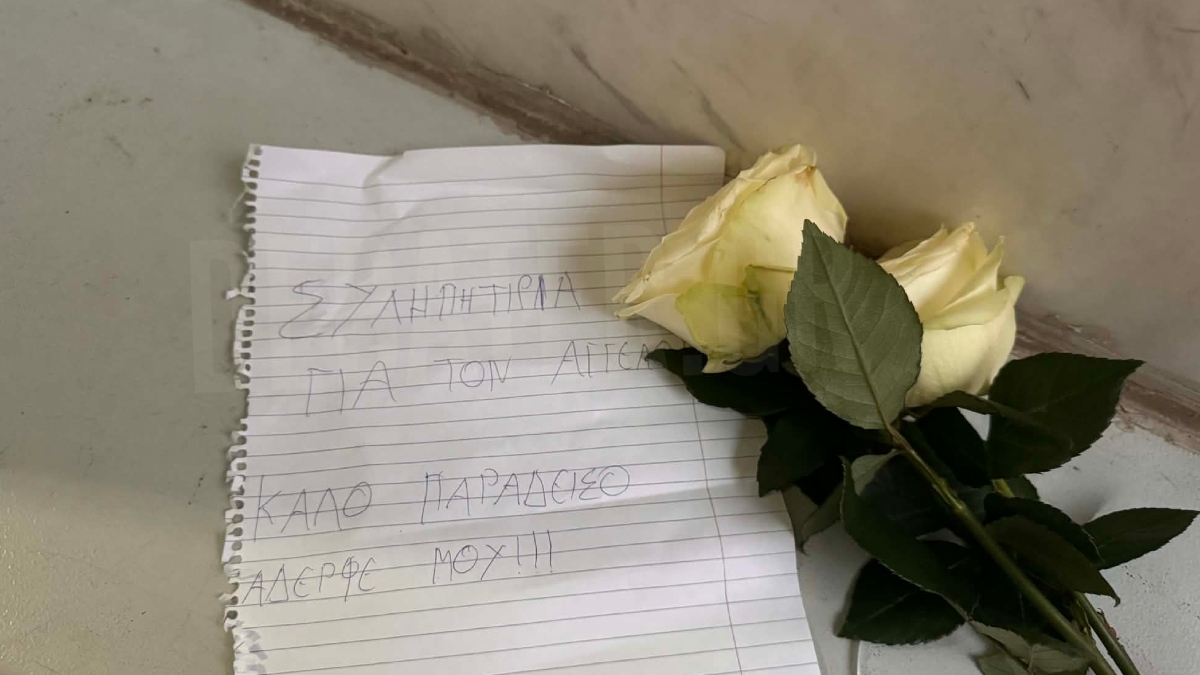 ΣΥΛΗΠΗΤΙΡΙΑ
ΓΙΑ ΤΟΝ
ΚΑΛΟ ΠΑΡΑΔΕΙΣΟ
ΑΔΕΡΦΕ ΜΟΥ!!!